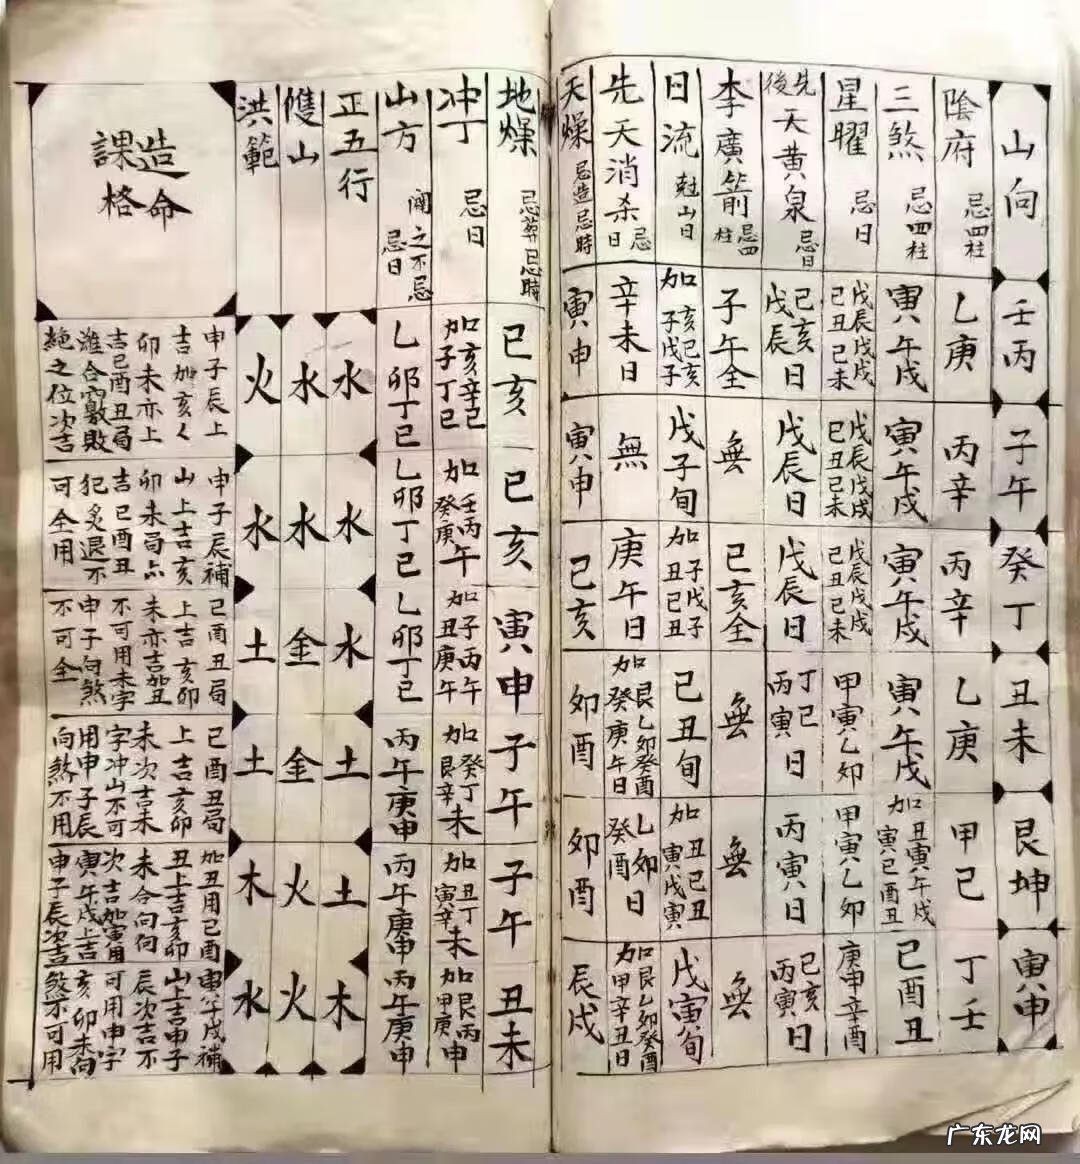 山向
壬丙
子午
癸丁
丑未
艮坤
寅申
陰府 忌四柱
乙庚
丙辛
丙辛
乙庚
甲己
丁壬
三煞 忌四柱
寅午戌
寅午戌
寅午戌
寅午戌
加丑寅午戌
寅巳酉丑
巳酉丑
星曜 忌日
戊辰戊戌
己丑己未
戊辰戊戌
己丑己未
戊辰戊戌
己丑己未
甲寅乙卯
甲寅乙卯
庚申辛酉
先後天黄泉 忌日
己亥
戊辰日
戊辰日
戊辰日
丁巳
丙寅日
丙寅日
己亥
丙寅日
李廣箭 忌四柱
子午全
無
巳亥全
無
無
無
日流 尅山日
加亥己亥
子戊子
戊子旬
加子戊子
丑己丑
己丑旬
加丑己丑
寅戊寅
戊寅旬
先天消杀 忌日
辛未日
無
庚午日
加艮乙卯癸酉
加癸庚午日
乙卯
癸酉日
加艮乙卯癸酉
加甲辛丑日
天燥 忌造忌時
寅申
寅申
巳亥
卯酉
卯酉
辰戌
地燥 忌葬忌時
巳亥
巳亥
寅申
子午
子午
丑未
冲丁 忌日
加亥辛巳
加子丁巳
加壬丙午
癸庚午
加子丙午
加丑庚午
加癸丁未
艮辛未
加丑丁未
寅辛未
加艮丙申
加甲庚申
山方 忌日
乙卯丁巳
乙卯丁巳
乙卯丁巳
丙午庚申
丙午庚申
丙午庚申
正五行
水
水
水
土
土
木
雙山
水
水
金
金
火
火
洪範
火
水
土
土
木
水
造命
課格
申子辰上
吉加亥
卯未亦上
吉巳酉丑局
雖合竅敗
絶之位次吉
申子辰補
山上吉亥
卯未局亦
吉巳酉丑
犯炙退不
可全用
巳酉丑局
上吉亥卯
未亦吉加丑
不可用未字
申子向煞
不可全
巳酉丑局
上吉亥卯
未次吉未
字冲山不可
用申子辰
向煞不用
加丑用巳酉
丑上吉亥卯
未合向
次吉加寅用
寅午戌上吉
申子辰次吉
寅午戌補
山上吉申子
辰次吉不
可用申字
亥卯未向
煞不可用
广东龙网